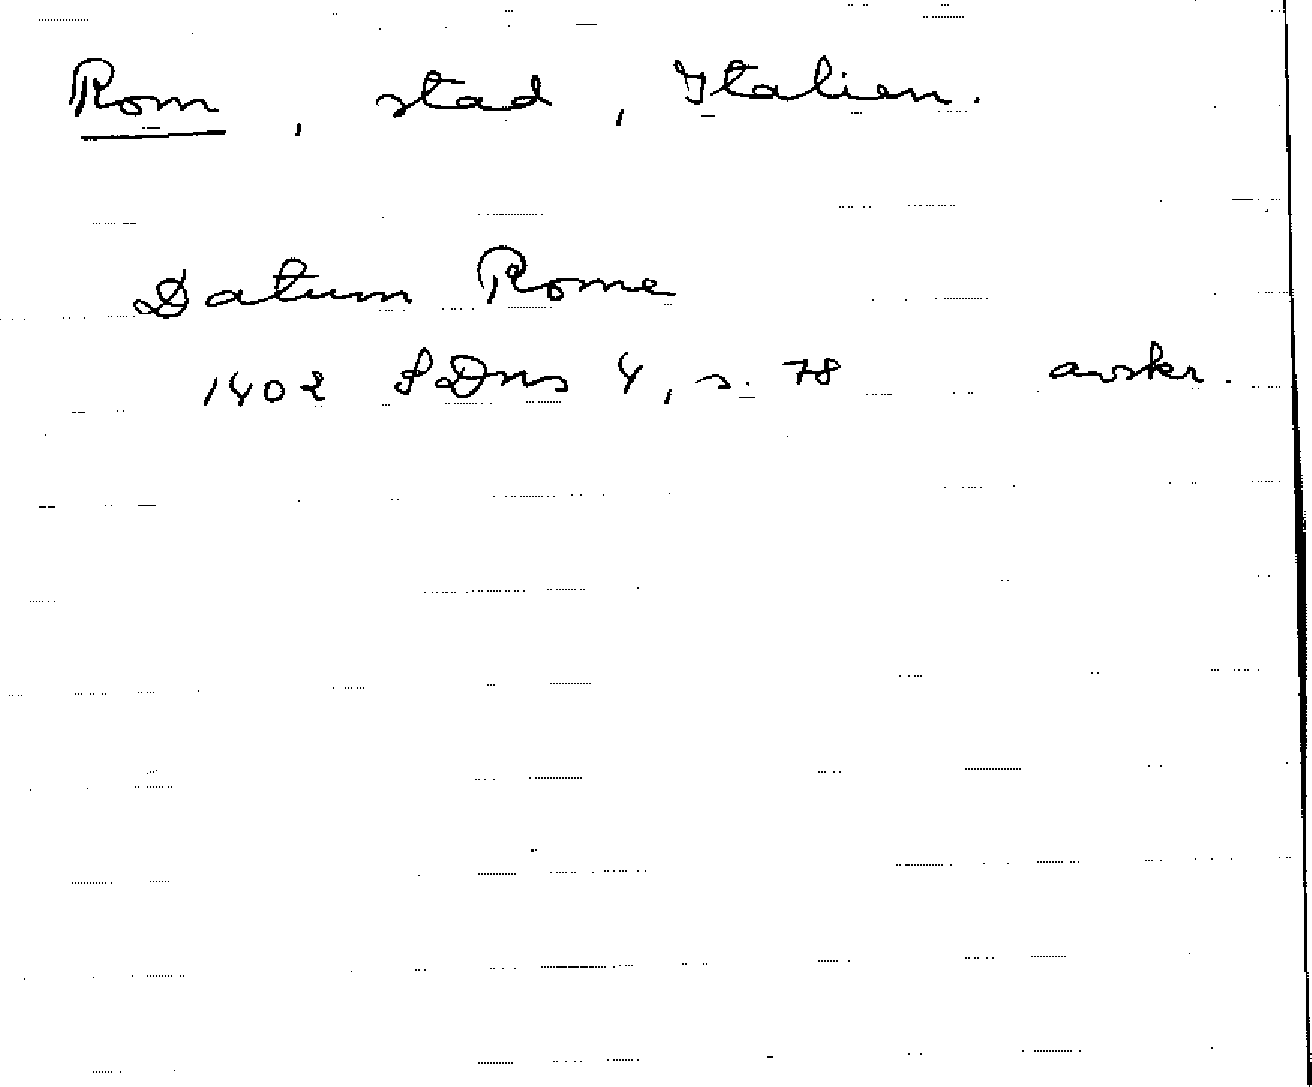 Rom, stad, Italien.
Datum Rome
1402 SDns 4, s. 78 avskr.